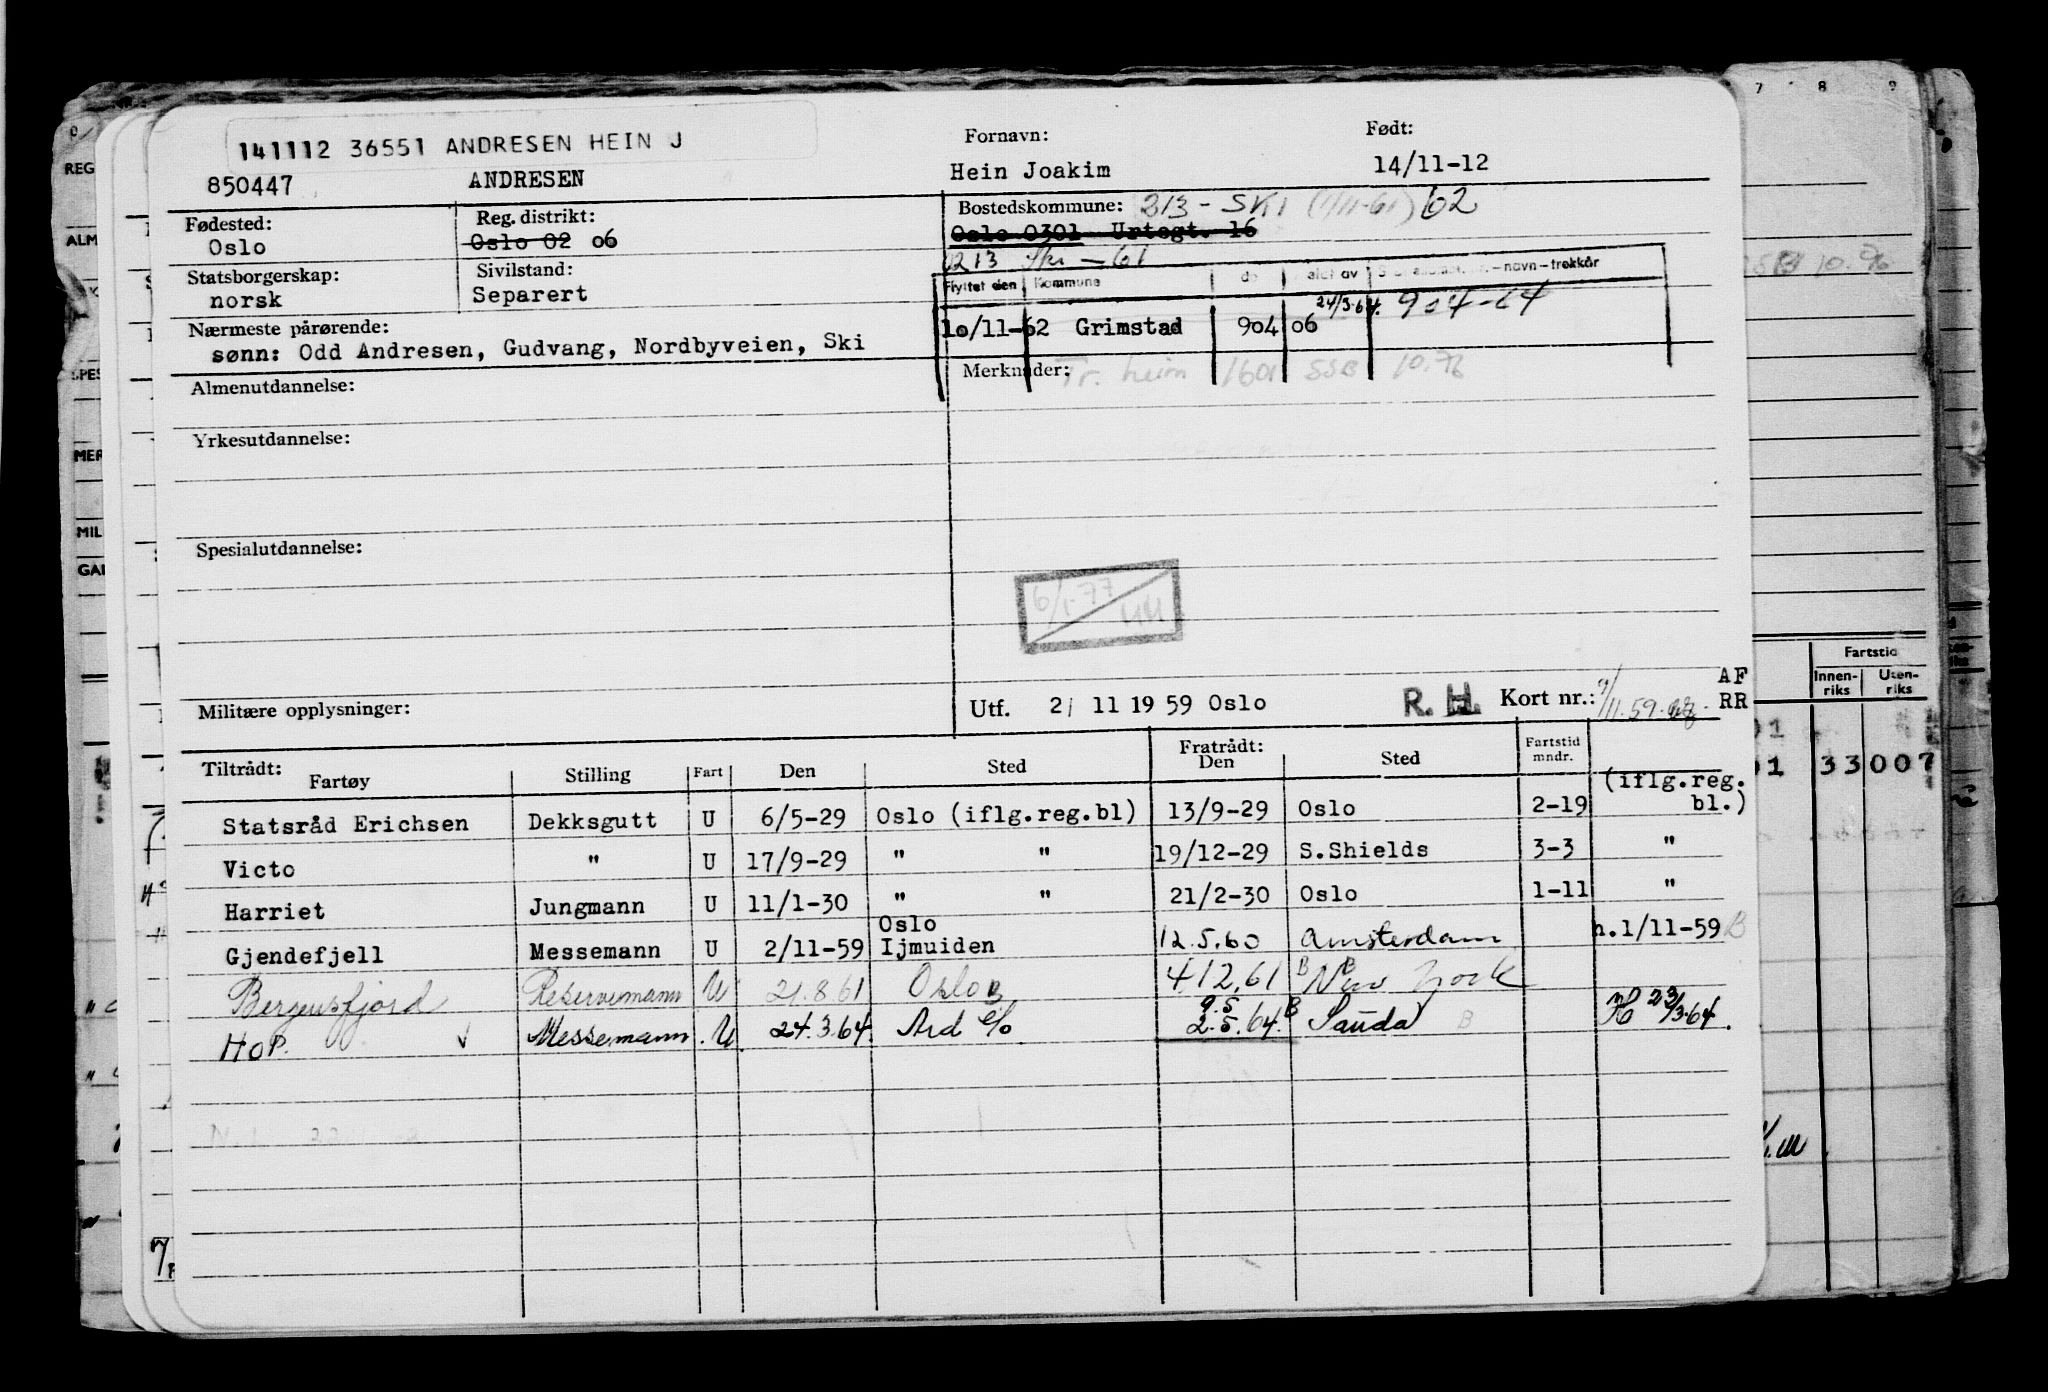 141112 36551 ANDRESEN HEIN J
850447 ANDRESEN
Fornavn: Hein Joakim
Født: 14/11-12
Fødested: Oslo
Reg. distrikt: Oslo 02 06
Bostedskommune: 213 - SKI (1/11-61) 62
Oslo 0301 Urtegt. 16
0213 Ski - 61
Statsborgerskap: norsk
Sivilstand: Separert
Flyttet den Kommune - navn - trekkår
10/11-62 Grimstad 904 06 24/3-64. 904-64
Nærmeste pårørende:
sønn: Odd Andresen, Gudvang, Nordbyveien, Ski
Merknader: Tr. heim 1601 SSB 10.76
Almenutdannelse:
Yrkesutdannelse:
Spesialutdannelse:
6/1-77
Militære opplysninger:
Utf. 2/ 11 19 59 Oslo R. H. Kort nr.: 9/11.59 AF
RR
Tiltrådt: Fartøy Stilling Fart Den Sted Fratrådt: Den Sted Fartstid mndr.
Statsråd Erichsen Dekksgutt U 6/5-29 Oslo (iflg.reg.bl) 13/9-29 Oslo 2-19 (iflg.reg.bl.)
Victo " U 17/9-29 " " 19/12-29 S.Shields 3-3 "
Harriet Jungmann U 11/1-30 " " 21/2-30 Oslo 1-11 "
Gjendefjell Messemann U 2/11-59 Oslo Ijmuiden 12.5.60 Amsterdam h.1/11-59 B
Bergensfjord Reservemann U 21.8.61 Oslo B 4.12.61 B New York
HOP. Messemann U 24.3.64. Ard 9.5 2.5.64. B Sauda B H 23/3.64.
REG
ALM
SPES
MER
MIL
GAR
7 8 9
10.76
Fartstid
Innen-riks Uten-riks
01
01 33007